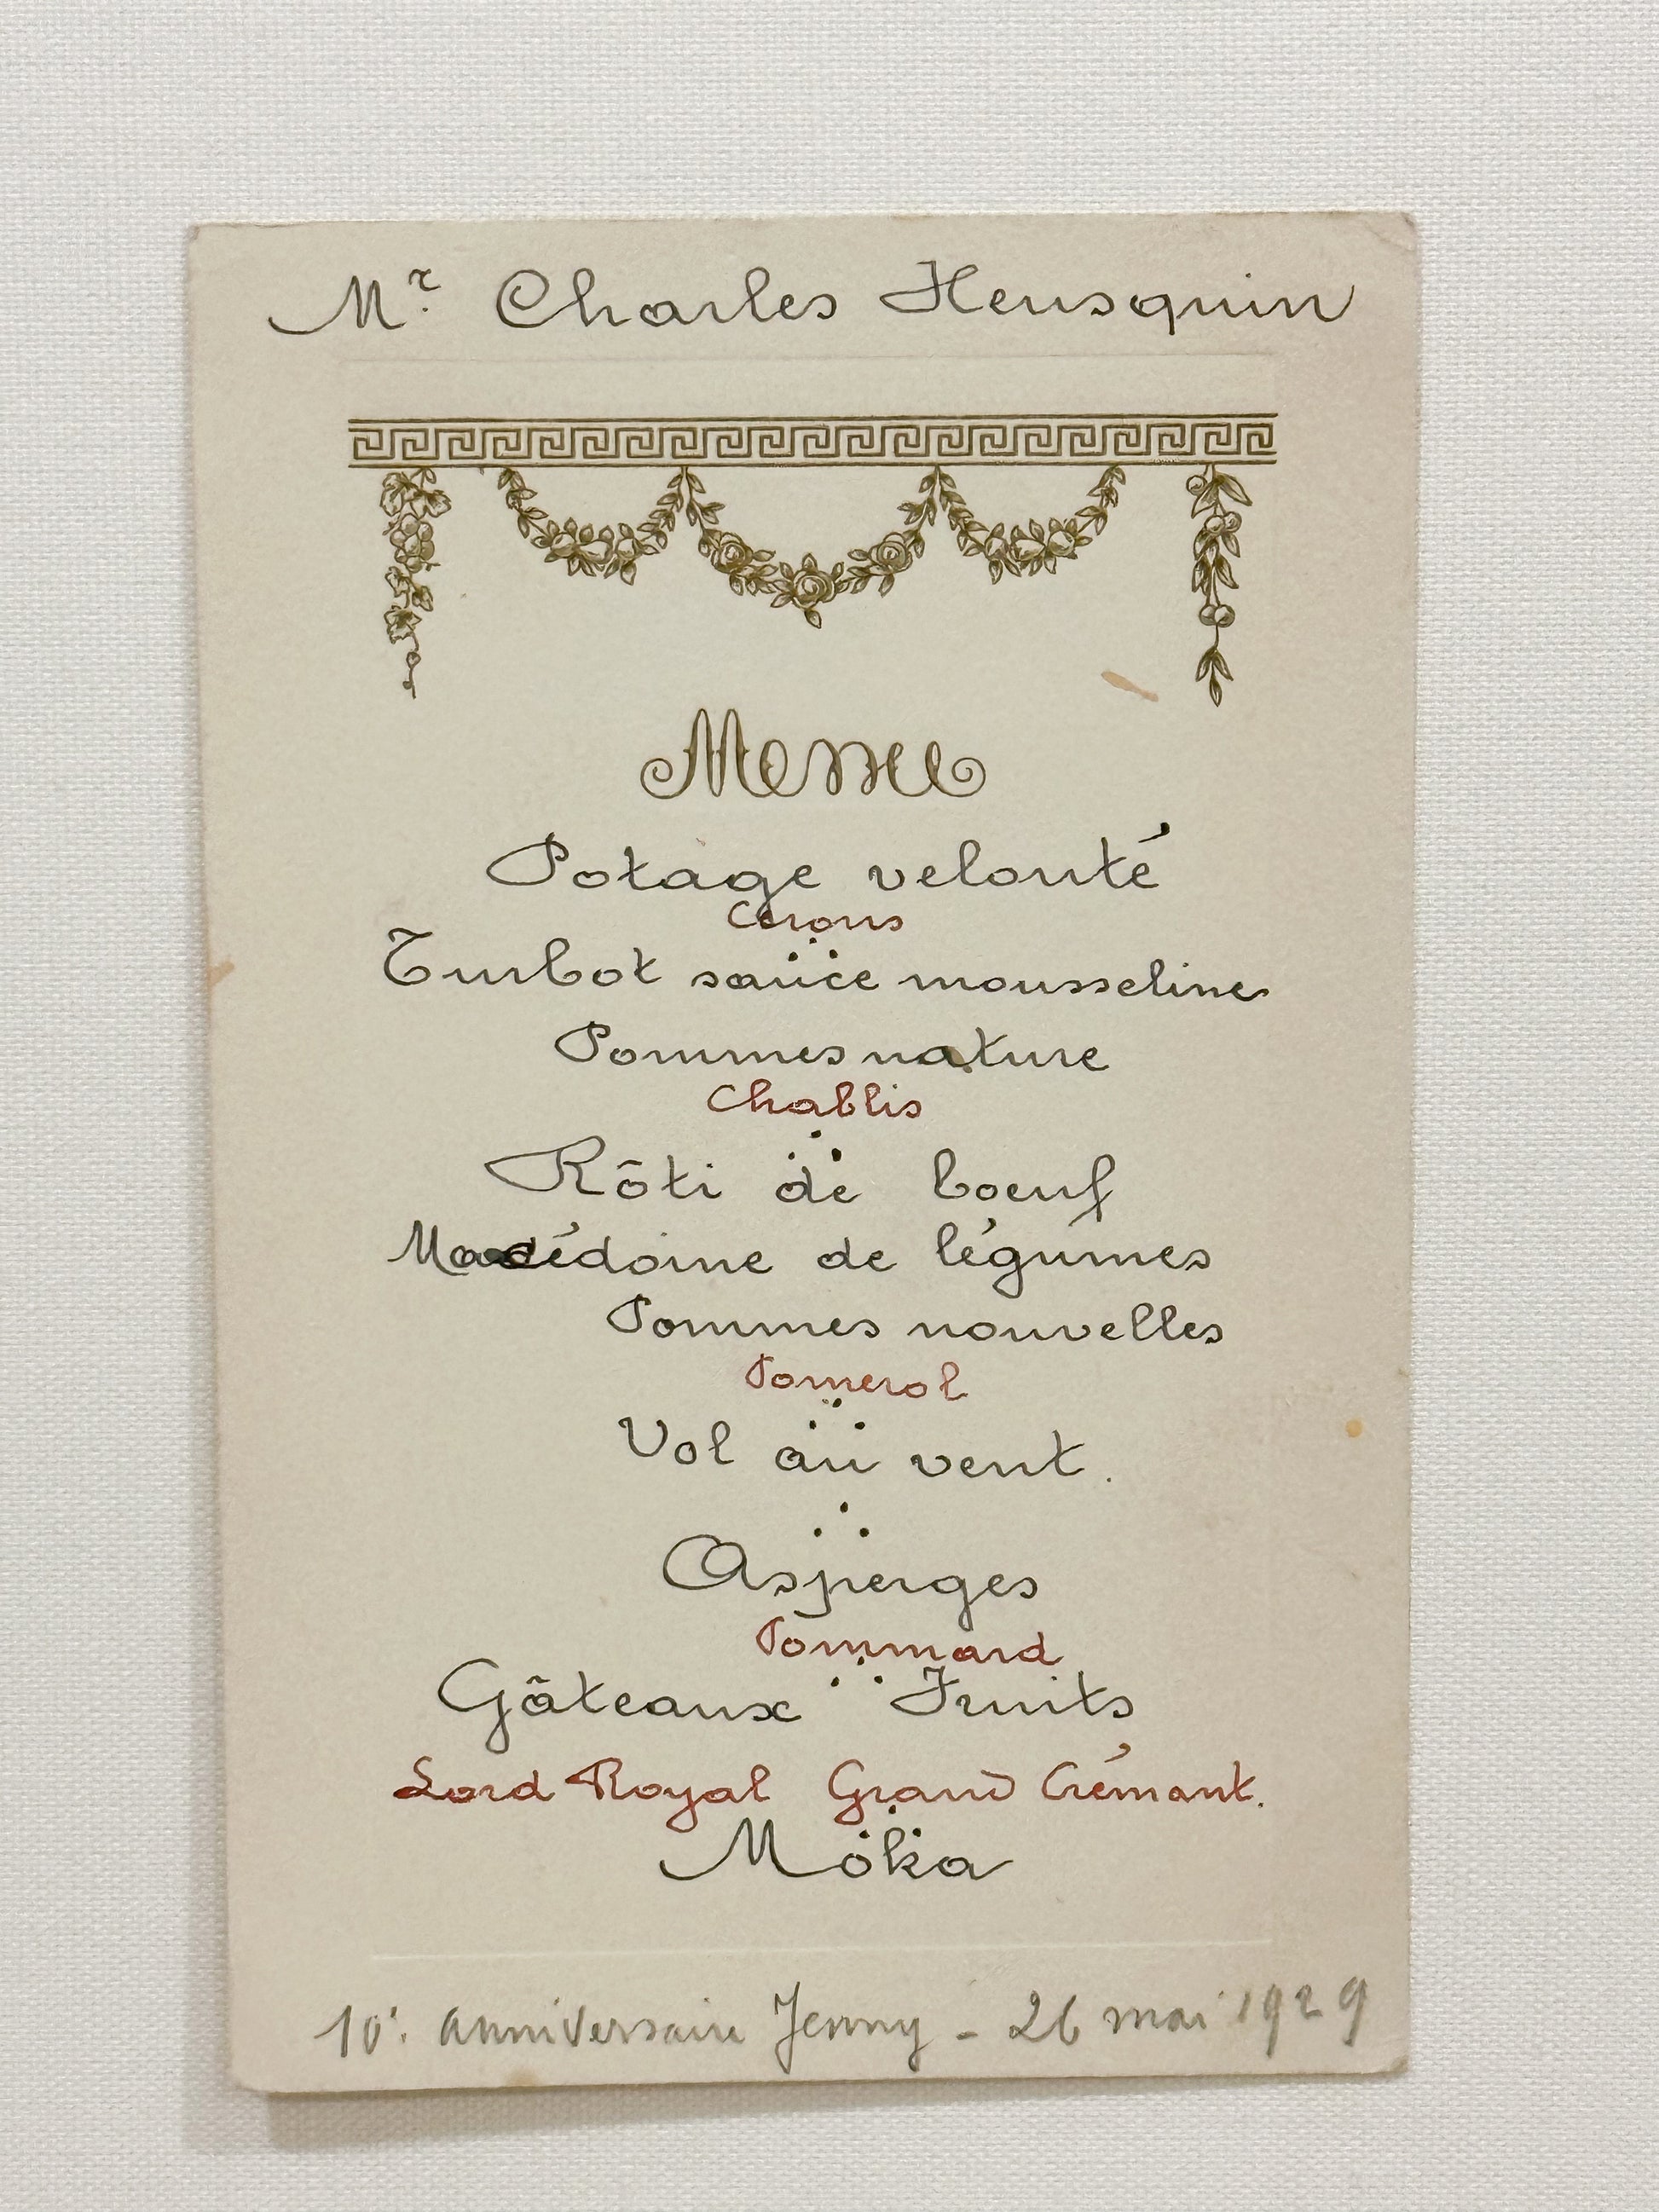 Mr Charles Heusquin
Menu
Potage velouté
Cérons
Turbot sauce mousseline
Pommes nature
Chablis
Rôti de boeuf
Macédoine de légumes
Pommes nouvelles
Pomerol
Vol au vent.
Asperges
Pommard
Gâteaux Fruits
Lord Royal Grand Crémant.
Moka
10e. anniversaire Jenny - 26 mai 1929